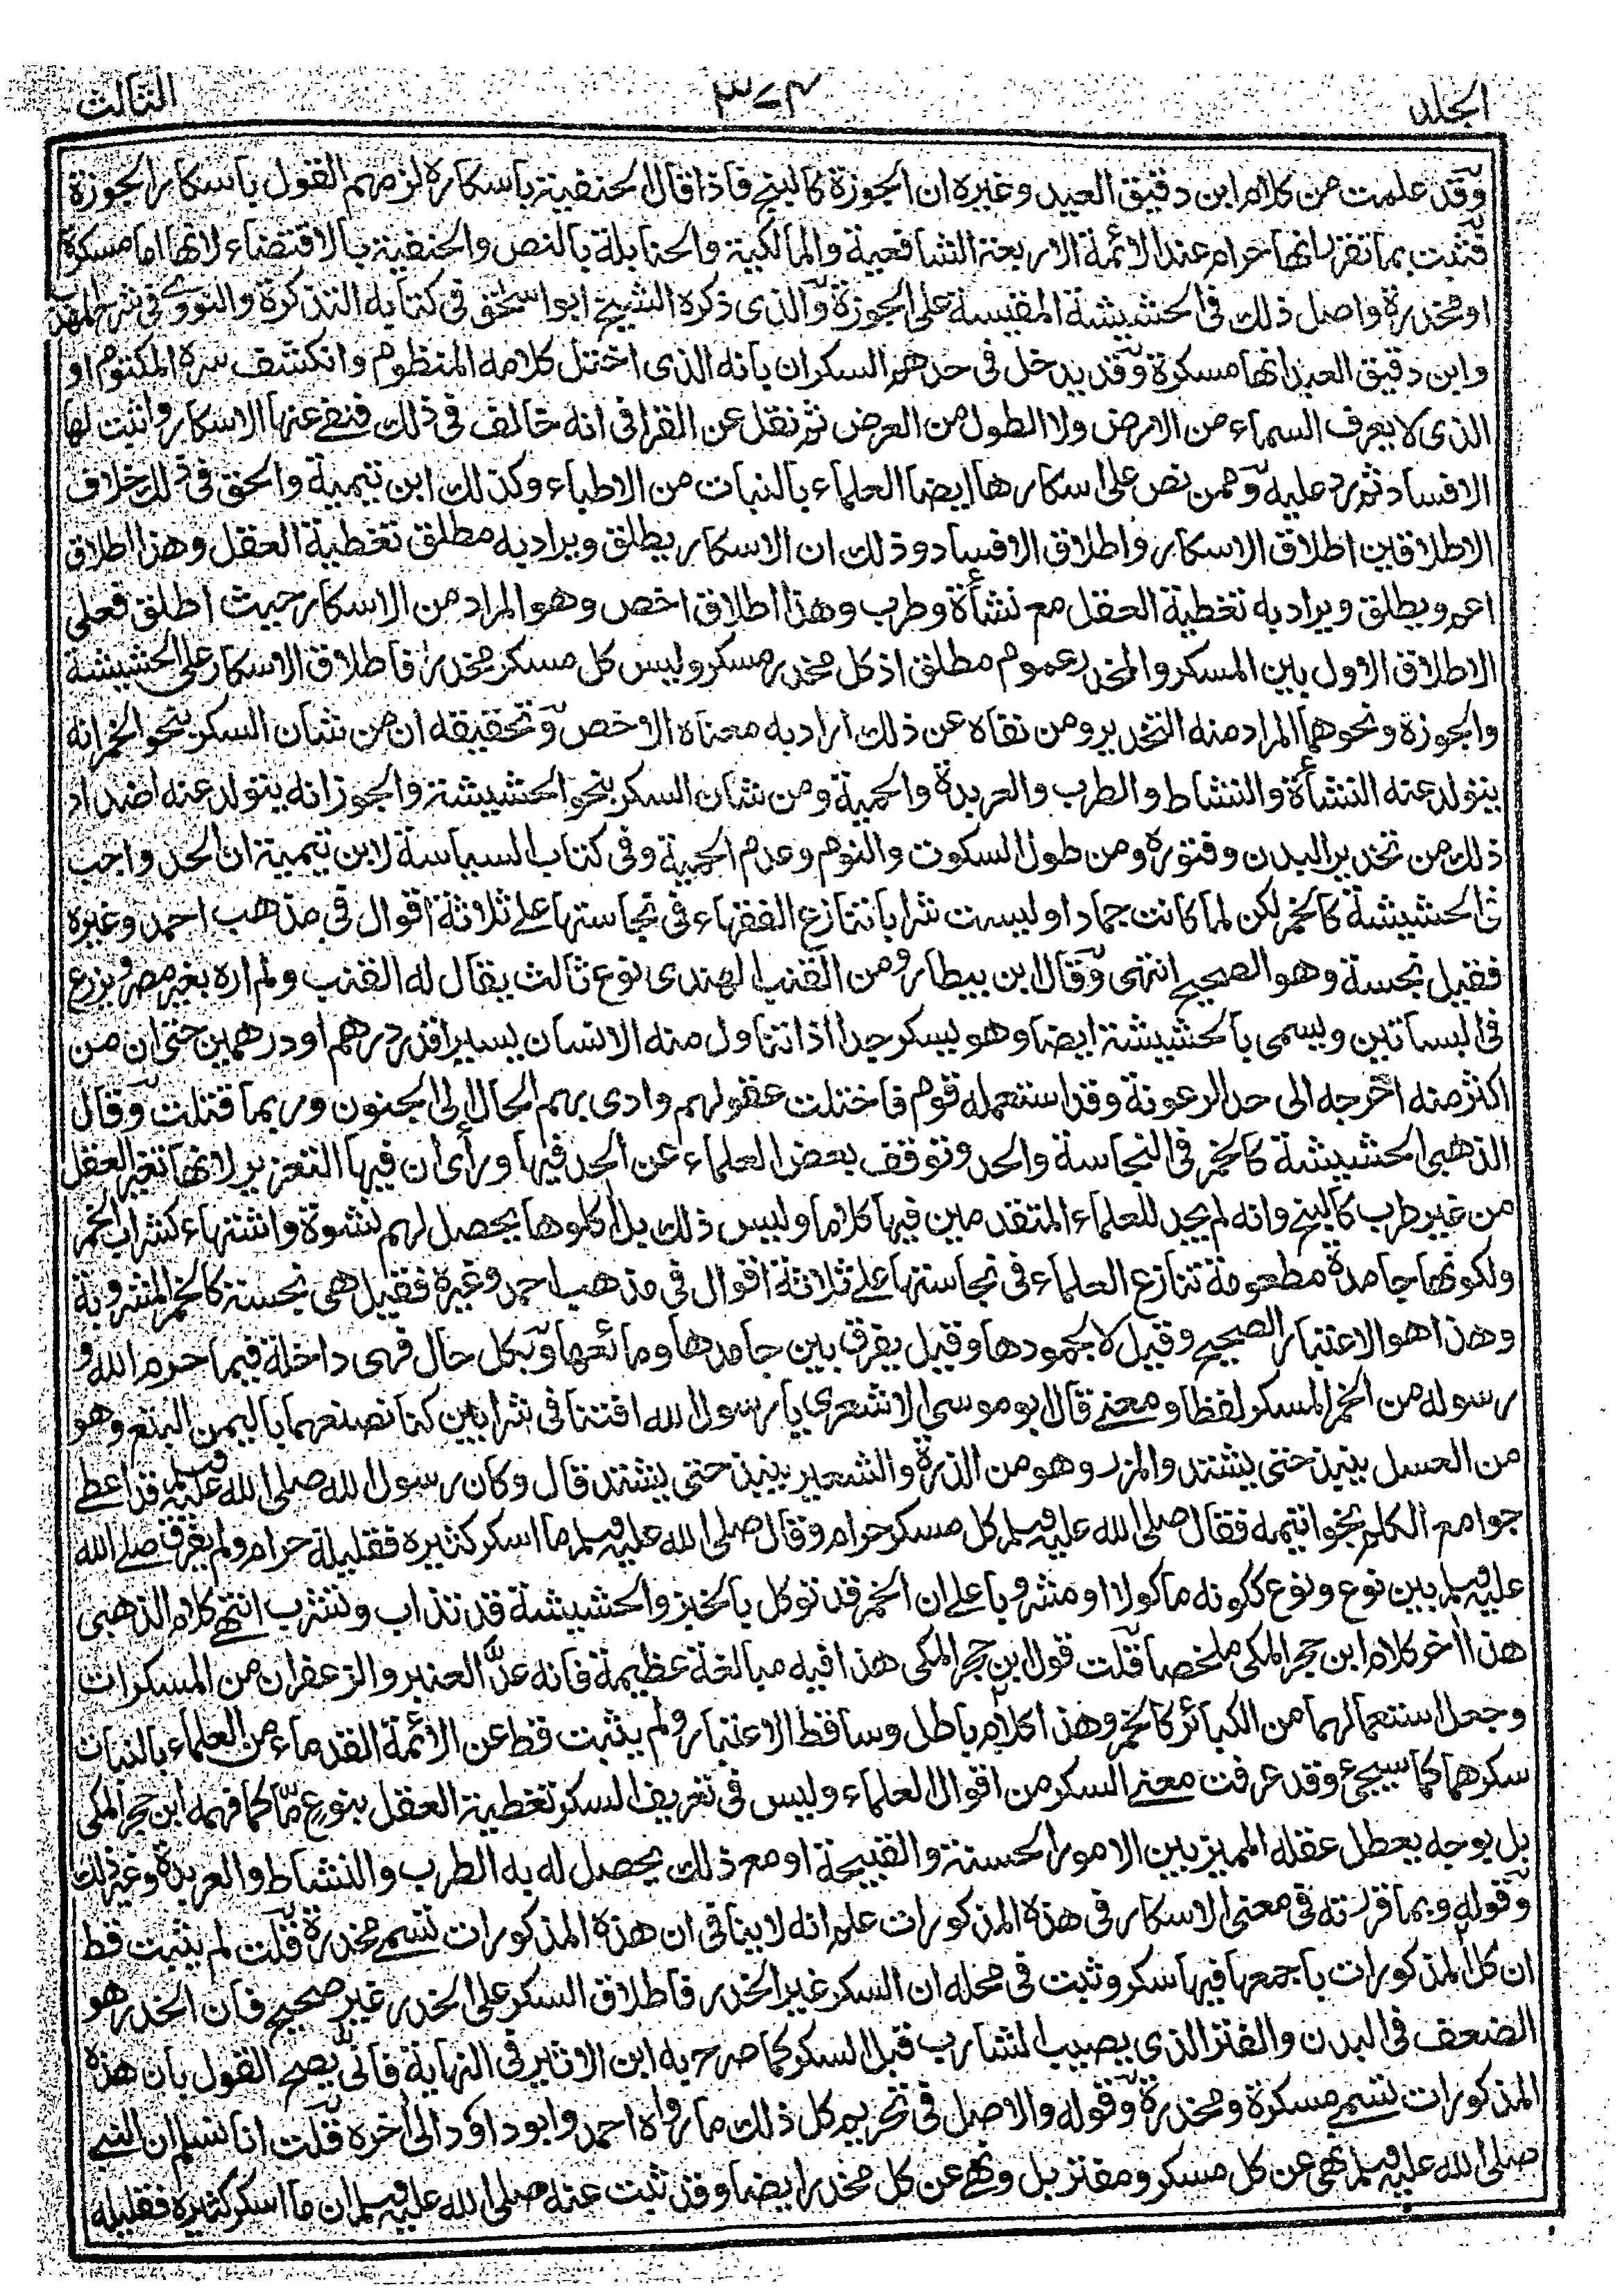 المجلد ٣٧٤ الثالث
وقد علمت من كلام ابن دقيق العيد وغيره ان الجوزة كالبنج فاذا قال الحنفية باسكاره لزمهم القول باسكار الجوزة
فثبت بما تقرر انها حرام عند الائمة الاربعة الشافعية والمالكية والحنابلة بالنص والحنفية بالاقتضاء لانها اما مسكرة
او مخدرة واصل ذلك فى الحشيشة المقيسة على الجوزة والذى ذكره الشيخ ابو اسحق فى كتابه التذكرة والنووى فى شرح المهذب
وابن دقيق العيد انها مسكرة وقد يدخل فى حدهم السكران بانه الذى اختل كلامه المنظوم وانكشف سره المكتوم او
الذى لا يعرف السماء من الارض ولا الطول من العرض ثم نقل عن القرافى انه خالف فى ذلك فنفى عنها الاسكار واثبت لها
الافساد ثم رد عليه وممن نص على اسكارها ايضا العلماء بالنبات من الاطباء وكذلك ابن تيمية والحق فى ذلك خلاف
الاطلاقين اطلاق الاسكار واطلاق الافساد وذلك ان الاسكار يطلق ويراد به مطلق تغطية العقل وهذا اطلاق
اعم ويطلق ويراد به تغطية العقل مع نشأة وطرب وهذا اطلاق اخص وهو المراد من الاسكار حيث اطلق فعلى
الاطلاق الاول بين المسكر والمخدر عموم مطلق اذ كل مخدر مسكر وليس كل مسكر مخدرا فاطلاق الاسكار على الحشيشة
والجوزة ونحوهما المراد منه التخدير ومن نفاه عن ذلك اراد به معناه الاخص وتحقيقه ان من شان السكر بنحو الخمر انه
يتولد عنه النشأة والنشاط والطرب والعربدة والحمية ومن شان السكر بنحو الحشيشة والجوز انه يتولد عنه اضداد
ذلك من تخدير البدن وفتوره ومن طول السكوت والنوم وعدم الحمية وفى كتاب السياسة لابن تيمية ان الحد واجب
فى الحشيشة كالخمر لكن لما كانت جمادا وليست شرابا تنازع الفقهاء فى نجاستها على ثلاثة اقوال فى مذهب احمد وغيره
فقيل نجسة وهو الصحيح انتهى وقال ابن بيطار ومن القنب الهندى نوع ثالث يقال له القنب ولم اره بغير مصر ويزرع
فى البساتين ويسمى بالحشيشة ايضا وهو يسكر جدا اذا تناول منه الانسان يسيرا قدر درهم او درهمين حتى ان من
اكثر منه اخرجه الى حد الرعونة وقد استعمله قوم فاختلت عقولهم وادى بهم الحال الى الجنون وربما قتلت وقال
الذهبى الحشيشة كالخمر فى النجاسة والحد وتوقف بعض العلماء عن الحد فيها ورأى ان فيها التعزير لانها تغير العقل
من غير طرب كالبنج وانه لم يجد للعلماء المتقدمين فيها كلاما وليس ذلك بل اكلوها يحصل لهم نشوة واشتهاء كشراب الخمر
ولكونها جامدة مطعومة تنازع العلماء فى نجاستها على ثلاثة اقوال فى مذهب احمد وغيره فقيل هى نجسة كالخمر المشروبة
وهذا هو الاعتبار الصحيح وقيل لا لجمودها وقيل يفرق بين جامدها ومائعها وبكل حال فهى داخلة فيما حرم الله و
رسوله من الخمر المسكر لفظا ومعنى قال ابو موسى الاشعرى يا رسول الله افتنا فى شرابين كنا نصنعهما باليمن البتع وهو
من العسل ينبذ حتى يشتد والمزر وهو من الذرة والشعير ينبذ حتى يشتد قال وكان رسول الله صلى الله عليه وسلم قد اعطى
جوامع الكلم بخواتيمه فقال صلى الله عليه وسلم كل مسكر حرام وقال صلى الله عليه وسلم ما اسكر كثيره فقليله حرام ولم يفرق صلى الله
عليه وسلم بين نوع ونوع ككونه ماكولا او مشروبا على ان الخمر قد توكل بالخبز والحشيشة قد تذاب وتشرب انتهى كلام الذهبى
هذا اخر كلام ابن حجر المكى ملخصا قلت قول ابن حجر المكى هذا فيه مبالغة عظيمة فانه عدّ العنبر والزعفران من المسكرات
وجعل استعمالهما من الكبائر كالخمر وهذا كلام باطل وساقط الاعتبار ولم يثبت قط عن الائمة القدماء من العلماء بالنبات
سكرهما كما سيجىء وقد عرفت معنى السكر من اقوال العلماء وليس فى تعريف السكر تغطية العقل بنوع مّا كما فهمه ابن حجر المكى
بل بوجه يعطل عقله المميز بين الامور الحسنة والقبيحة او مع ذلك يحصل له به الطرب والنشاط والعربدة وغير ذلك
وقوله وبما قررته فى معنى الاسكار فى هذه المذكورات علم انه لا ينافى ان هذه المذكورات تسمى مخدرة قلت لم يثبت قط
ان كل المذكورات باجمعها فيها سكر وثبت فى محله ان السكر غير الخدر فاطلاق السكر على الخدر غير صحيح فان الخدر هو
الضعف فى البدن والفتر الذى يصيب الشارب قبل السكر كما صرح به ابن الاثير فى النهاية فانى يصح القول بان هذه
المذكورات تسمى مسكرة ومخدرة وقوله والاصل فى تحريم كل ذلك ما رواه احمد وابو داؤد الى اخره قلت انا نسلم ان النبى
صلى الله عليه وسلم نهى عن كل مسكر ومفتر بل ونهى عن كل مخدر ايضا وقد ثبت عنه صلى الله عليه وسلم ان ما اسكر كثيره فقليله